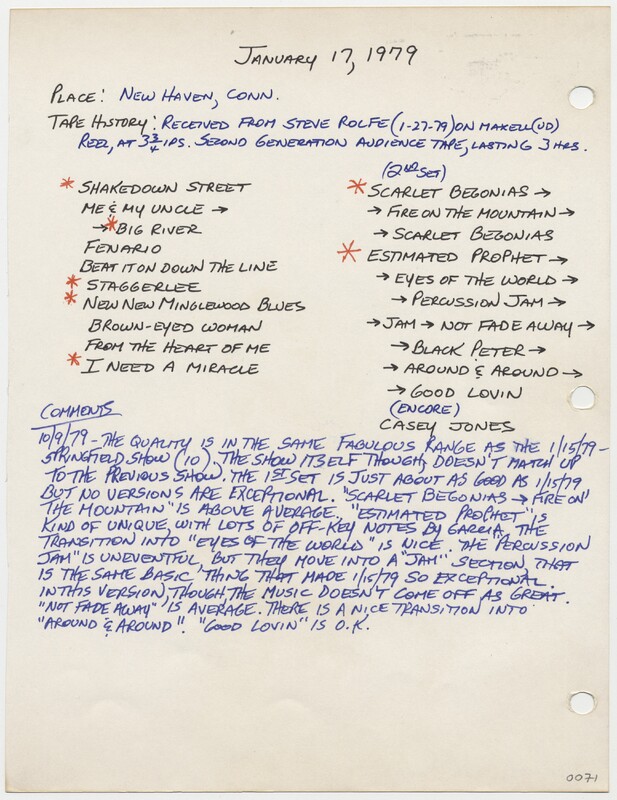 January 17, 1979
Place: New Haven, Conn.
Tape History: Received from Steve Rolfe (1-27-79) on Maxell (UD)
Reel, at 3 3/4 ips. Second generation audience tape, lasting 3 hrs.
* Shakedown Street
Me & My Uncle →
→ * Big River
Fenario
Beat It On Down The Line
* Staggerlee
* New New Minglewood Blues
Brown-Eyed Woman
From The Heart Of Me
* I Need A Miracle
(2nd Set)
* Scarlet Begonias →
→ Fire On The Mountain →
→ Scarlet Begonias
* Estimated Prophet →
→ Eyes Of The World →
→ Percussion Jam →
→ Jam → Not Fade Away →
→ Black Peter →
→ Around & Around →
→ Good Lovin
(Encore)
Casey Jones
Comments
10/9/79 - The quality is in the same fabulous range as the 1/15/79 -
Springfield show (10). The show itself though, doesn't match up
to the previous show. The 1st set is just about as good as 1/15/79
but no versions are exceptional. "Scarlet Begonias → Fire on
the Mountain" is above average. "Estimated Prophet" is
kind of unique, with lots of off-key notes by Garcia. The
transition into "Eyes of the World" is nice. The Percussion
Jam" is uneventful, but they move into a "Jam" section that
is the same basic thing that made 1/15/79 so exceptional.
In this version, though, the music doesn't come off as great.
"Not Fade Away" is average. There is a nice transition into
"Around & Around". "Good Lovin" is O.K.
0071